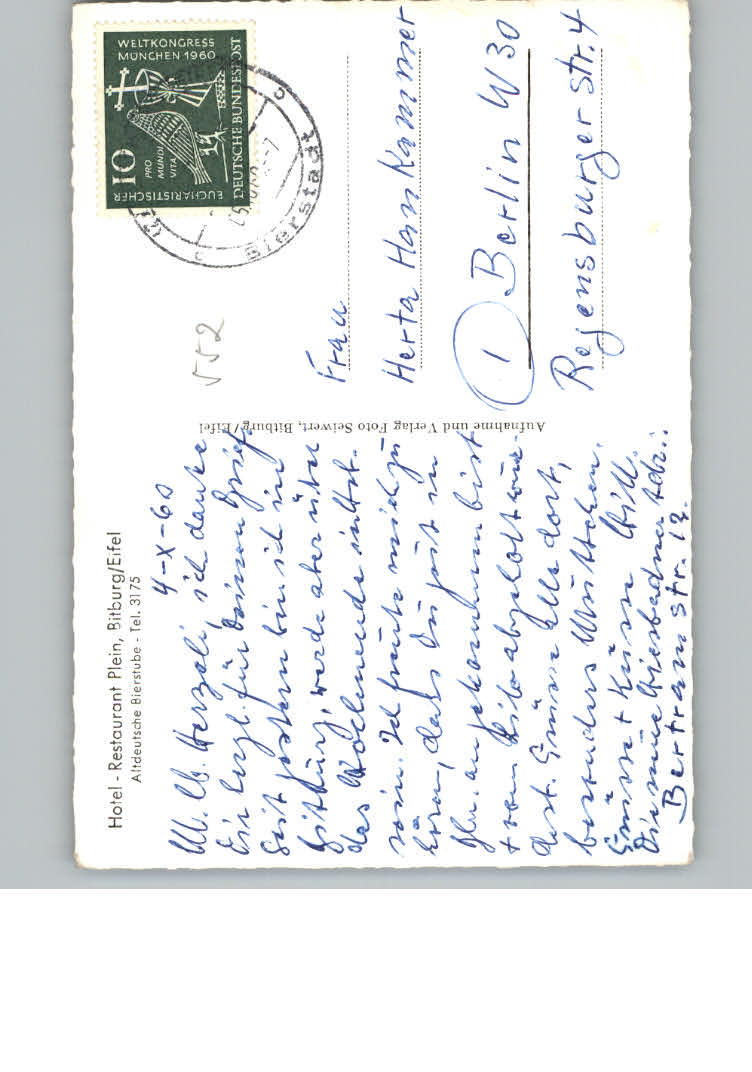 Hotel - Restaurant Plein, Bitburg/Eifel
Altdeutsche Bierstube - Tel. 3175
4-X-60
M. lb. Herzeli, ich danke
Dir herzl. für Deinen Brief.
Seit gestern bin ich in
Bitburg, werde aber über
das Wochenende in
sein. Ich freute mich zu
hören, dass Du gut in
angekommen bist
+ von abgeholt wur-
dest. Grüsse alle dort,
besonders Muttchen.
Grüsse + Küsse
Die neue Wiesbadner Adr.:
Bertramstr. 13.
Aufnahme und Verlag Foto Seiwert, Bitburg/Eifel
552
WELTKONGRESS
MÜNCHEN 1960
EUCHARISTISCHER
DEUTSCHE BUNDESPOST
PRO
MUNDI
VITA
10
Bierstadt
Frau
Herta Hannkammer
1 Berlin W30
Regensburger Str. 4